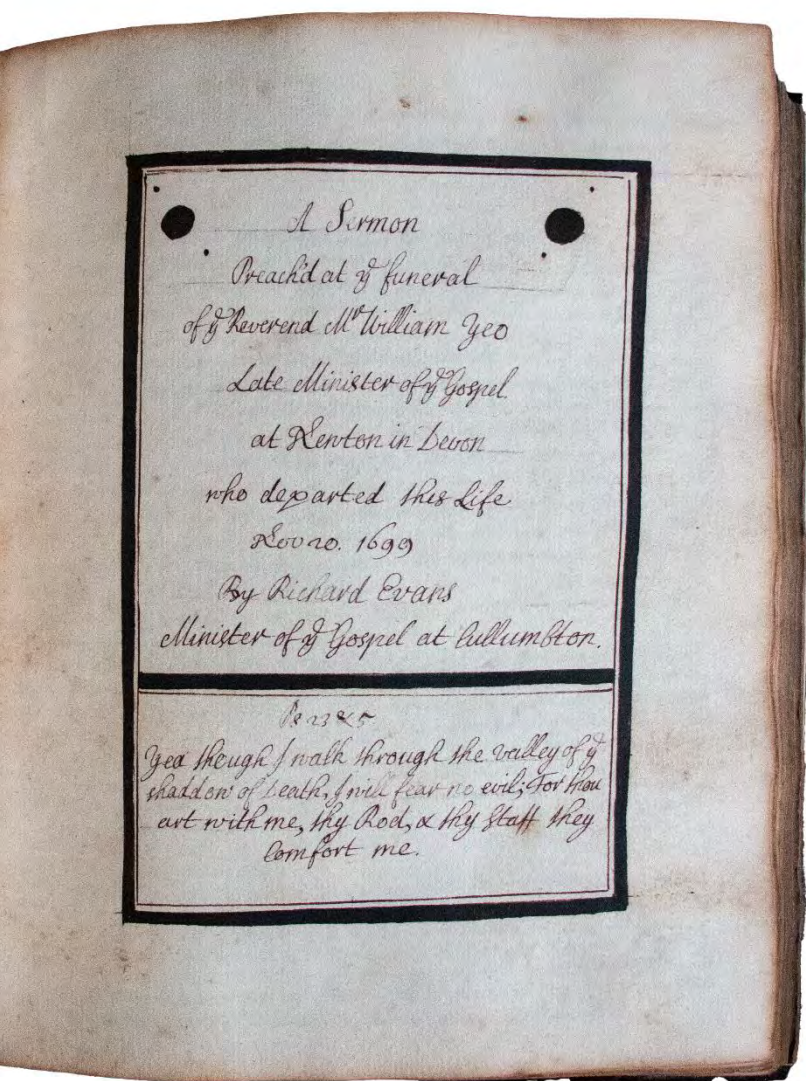 A Sermon
Preach'd at yͤ funeral
of yͤ Reverend Mʳ William Yeo
Late Minister of yͤ Gospel
at Newton in Devon
who departed this Life
Nov 20. 1699
By Richard Evans
Minister of yͤ Gospel at Cullumbton.
Ps 23 & 5
Yea though I walk through the valley of yͤ
shaddow of Death, I will fear no evil; For thou
art with me, thy Rod, & thy Staff they
Comfort me.